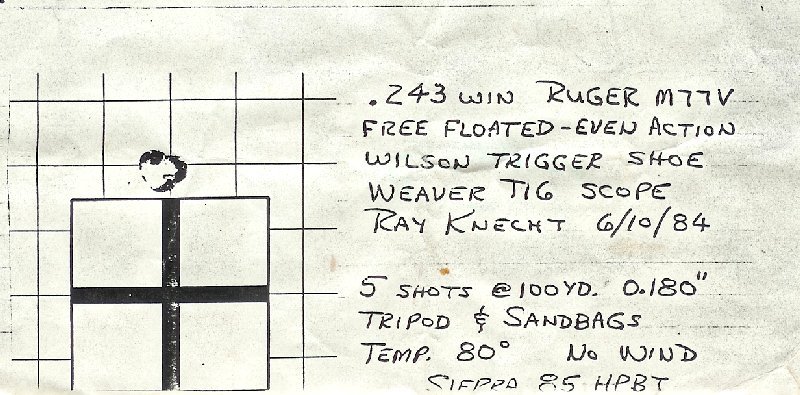 .243 WIN RUGER M77V
FREE FLOATED-EVEN ACTION
WILSON TRIGGER SHOE
WEAVER T16 SCOPE
RAY KNECHT 6/10/84
5 SHOTS @ 100YD. 0.180"
TRIPOD & SANDBAGS
TEMP. 80° NO WIND
SIERRA 85 HPBT